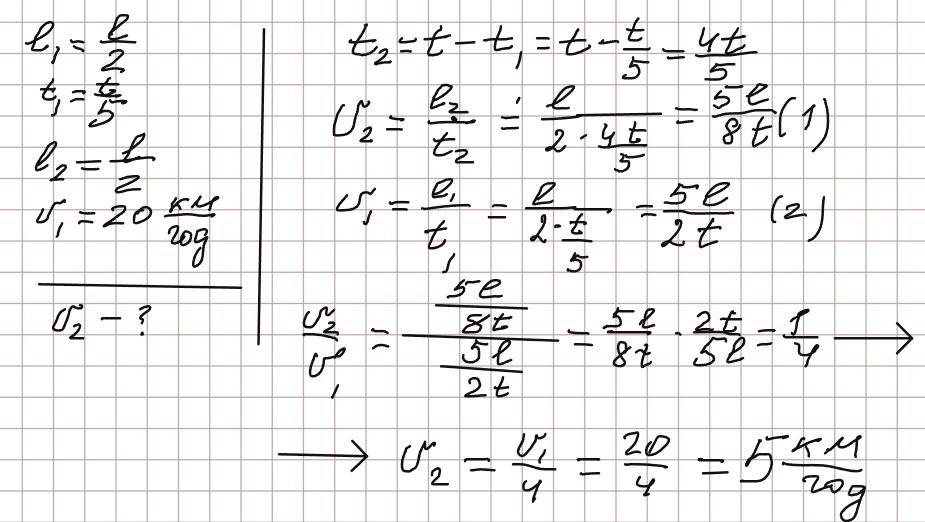 l₁ = l/2
t₁ = t/5
l₂ = l/2
υ₁ = 20 км/год
υ₂ - ?
t₂ = t - t₁ = t - t/5 = 4t/5
υ₂ = l₂/t₂ = l/(2 · 4t/5) = 5l/8t (1)
υ₁ = l₁/t₁ = l/(2 · t/5) = 5l/2t (2)
υ₂/υ₁ = (5l/8t)/(5l/2t) = 5l/8t · 2t/5l = 1/4 →
→ υ₂ = υ₁/4 = 20/4 = 5 км/год